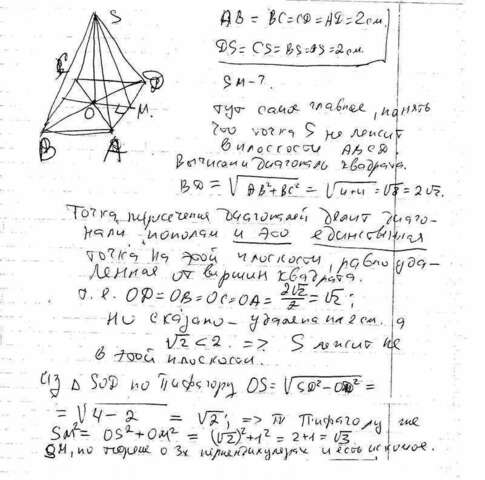 S
C
D
O
M.
B
A
AB = BC=CD=AD=2см.
DS=CS=BS=AS=2см.
SM-?
тут самое главное, понять
что точка S не лежит
в плоскости ABCD
Вычислим диагональ квадрата.
BD = √AB²+BC² = √4+4 = √8 = 2√2.
Точка пересечения диагоналей делит диаго-
нали пополам и это единственная
точка на этой плоскости, равноуда-
ленная от вершин квадрата.
т.е. OD=OB=OC=OA= 2√2/2 = √2;
но сказано - удалена на 2 см. а
√2 < 2. => S лежит не
в этой плоскости.
Из △ SOD по Пифагору OS = √SD²-OD² =
= √4-2 = √2; => по Пифагору же
SM² = OS²+OM² = (√2)²+1² = 2+1 = √3
SM, по теореме о 3х перпендикулярах и есть искомое.